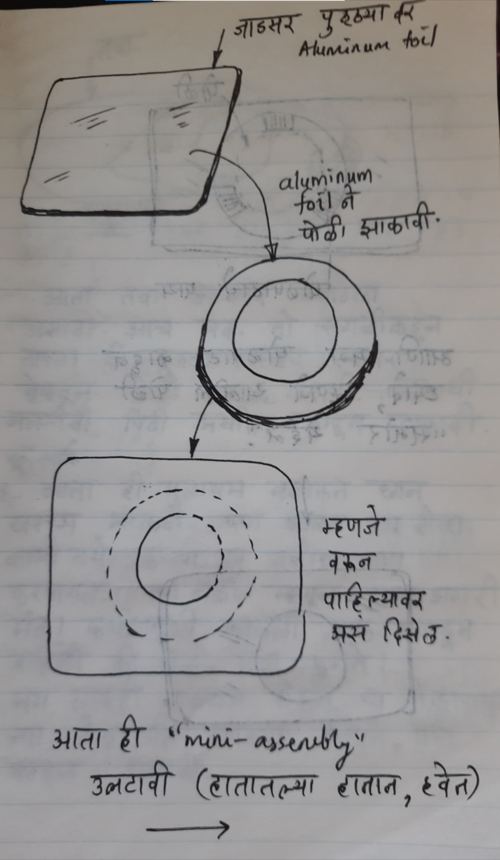 जाडसर पुठ्ठ्या वर
Aluminum foil
aluminum
foil ने
पोळी झाकावी.
म्हणजे
वरून
पाहिल्यावर
असं दिसेल.
आता ही "mini-assembly"
उलटावी (हातातल्या हातान, हवेत)